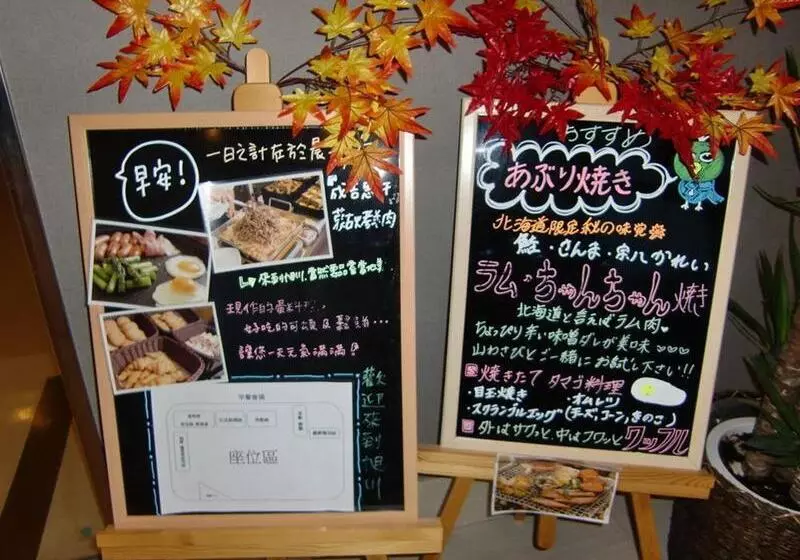 早安!
一日之計在於晨
成吉思汗
蒙古烤肉
來到旭川,當然要品嚐當地美
現作的蛋料理,
好吃的可頌及鬆餅…
讓您一天元氣滿滿!
歡迎來到旭川
早餐會場
座位區
おすすめ
あぶり焼き
北海道限定秋の味覚祭
鮭・さんま・宗八かれい
ラム・ちゃんちゃん焼き
北海道と言えばラム肉♥
ちょっぴり辛い味噌ダレが美味♡♡♡
山わさびとご一緒にお試し下さい!!
焼きたて タマゴ料理
・目玉焼き ・オムレツ
・スクランブルエッグ(チーズ・コーン・きのこ)
外はサクッと、中はフワッとワッフル